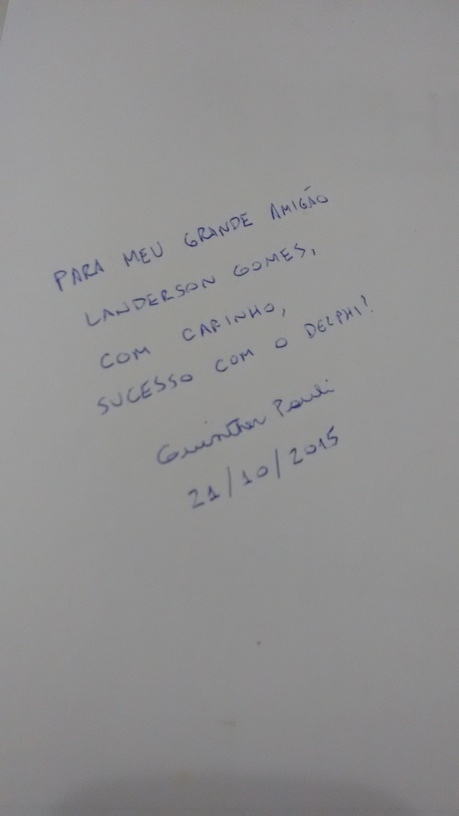 PARA MEU GRANDE AMIGÃO
LANDERSON GOMES,
COM CARINHO,
SUCESSO COM O DELPHI!
Guinther Pauli
21/10/2015